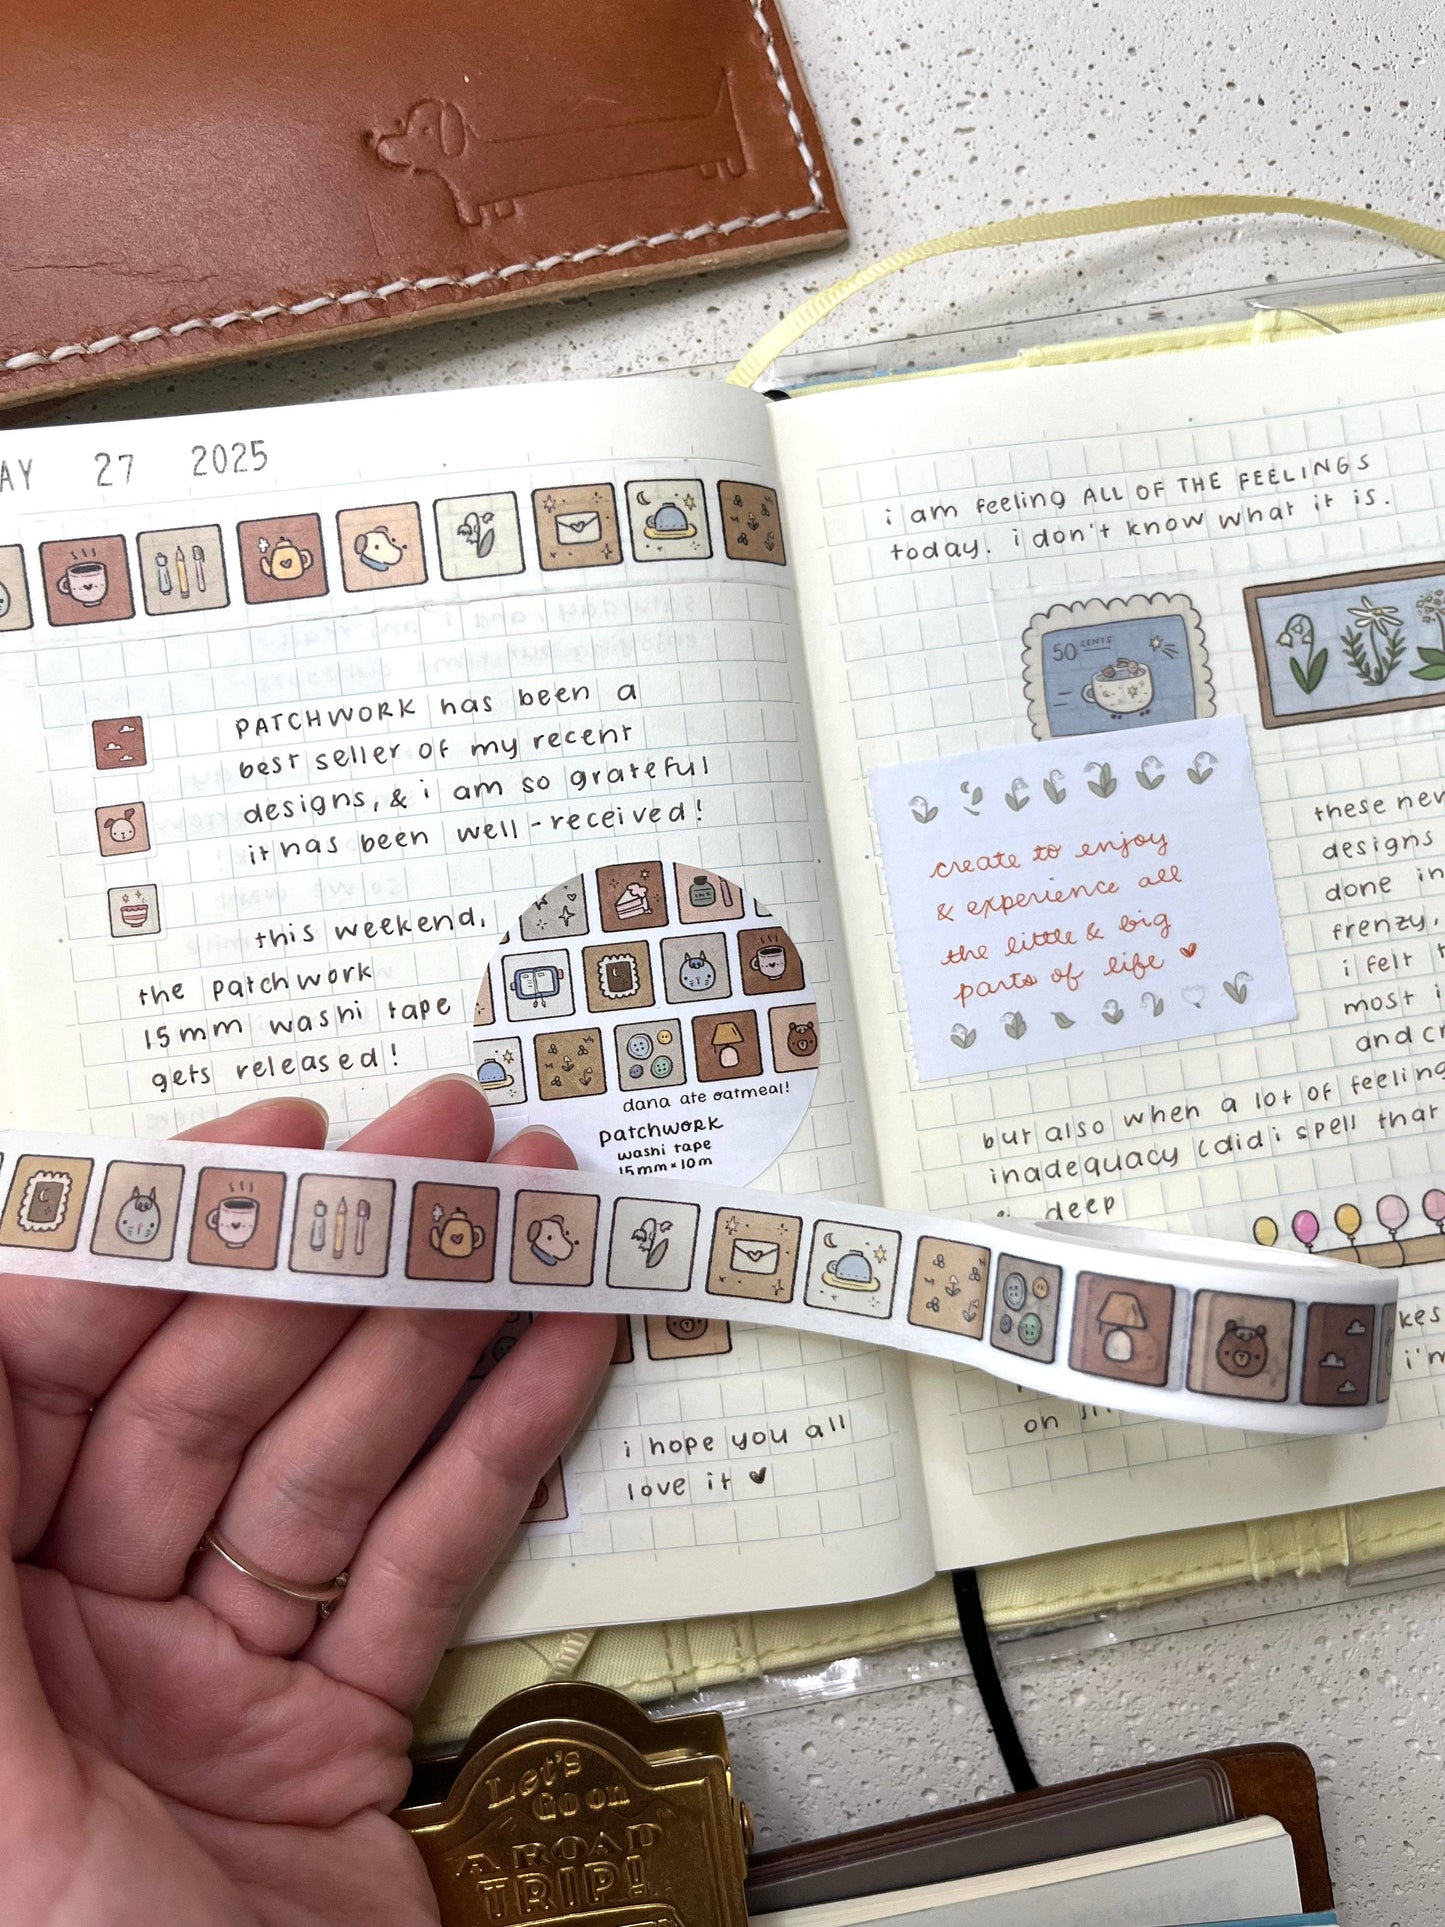 AY 27 2025
PATCHWORK has been a
best seller of my recent
designs, & i am so grateful
it has been well-received!
this weekend,
the patchwork
15mm washi tape
gets released!
INK
dana ate oatmeal!
patchwork
washi tape
15mm × 10m
i hope you all
love it ♥
i am feeling ALL OF THE FEELINGS
today. i don't know what it is.
50 CENTS
create to enjoy
& experience all
the little & big
parts of life ♥
these new
designs
done in
frenzy,
i felt
most i
and cr
but also when a lot of feeling
inadequacy (did i spell that
deep
kes
i'm
on
Let's
Go on
A ROAD
TRIP!